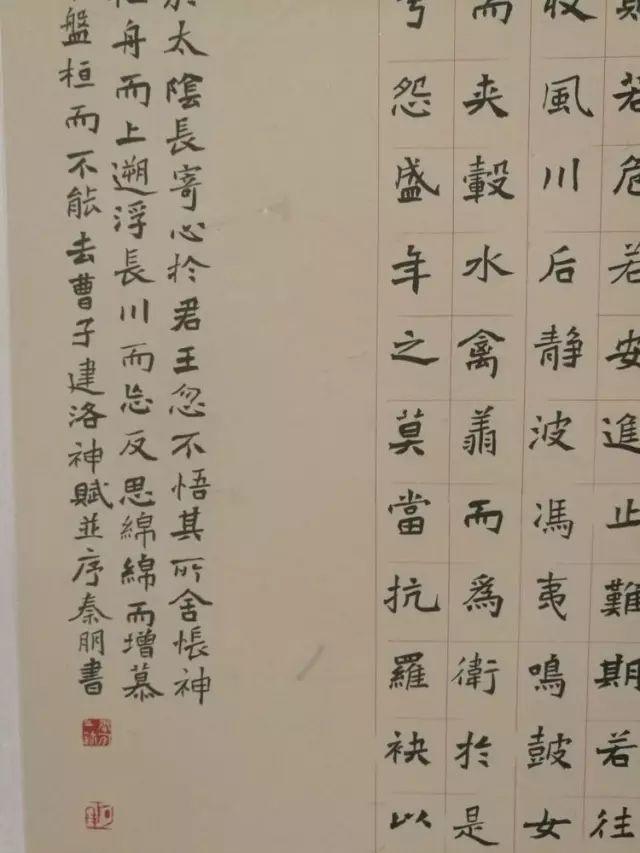 則若危若安進止難期若往
收風川后静波馮夷鳴鼓女
而夾轂水禽翔而為衛於是
兮怨盛年之莫當抗羅袂以
於太陰長寄心於君王忽不悟其所舍悵神
舟而上遡浮長川而忘反思綿綿而增慕
盤桓而不能去曹子建洛神賦並序秦朋書